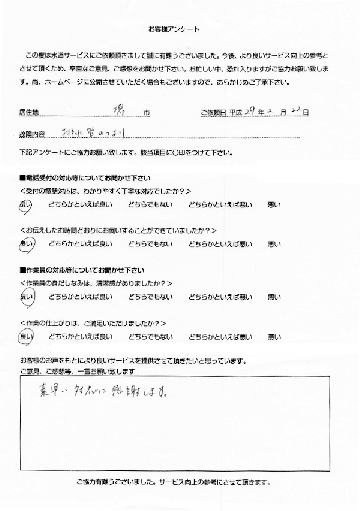 お客様アンケート
この度は水道サービスにご依頼頂きまして誠に有難うございました。今後、より良いサービス向上の参考と
させて頂くため、率直なご意見、ご感想をお聞かせ下さい。お忙しい中、恐れ入りますがご協力お願い致しま
す。尚、ホームページに公開させていただく場合もございますので、あらかじめご了承下さい。
居住地 堺 市 ご依頼日 平成 29年 2月 23日
故障内容 排水管のつまり
下記アンケートにご協力お願い致します。該当項目に〇印をつけて下さい。
■電話受付の対応等についてお聞かせ下さい
<受付の電話対応は、わかりやすく丁寧な対応でしたか?>
良い どちらかといえば良い どちらでもない どちらかといえば悪い 悪い
<お伝えしたお時間どおりにお伺いすることができていましたか?>
良い どちらかといえば良い どちらでもない どちらかといえば悪い 悪い
■作業員の対応等についてお聞かせ下さい
<作業員の身だしなみは、清潔感がありましたか?>
良い どちらかといえば良い どちらでもない どちらかといえば悪い 悪い
<作業の仕上がりは、ご満足いただけましたか?>
良い どちらかといえば良い どちらでもない どちらかといえば悪い 悪い
お客様のお声をもとにより良いサービスを提供させて頂きたいと思っています。
ご意見、ご感想等、一言お願い致します
素早い対応に感謝します。
ご協力有難うございました。サービス向上の参考にさせて頂きます。